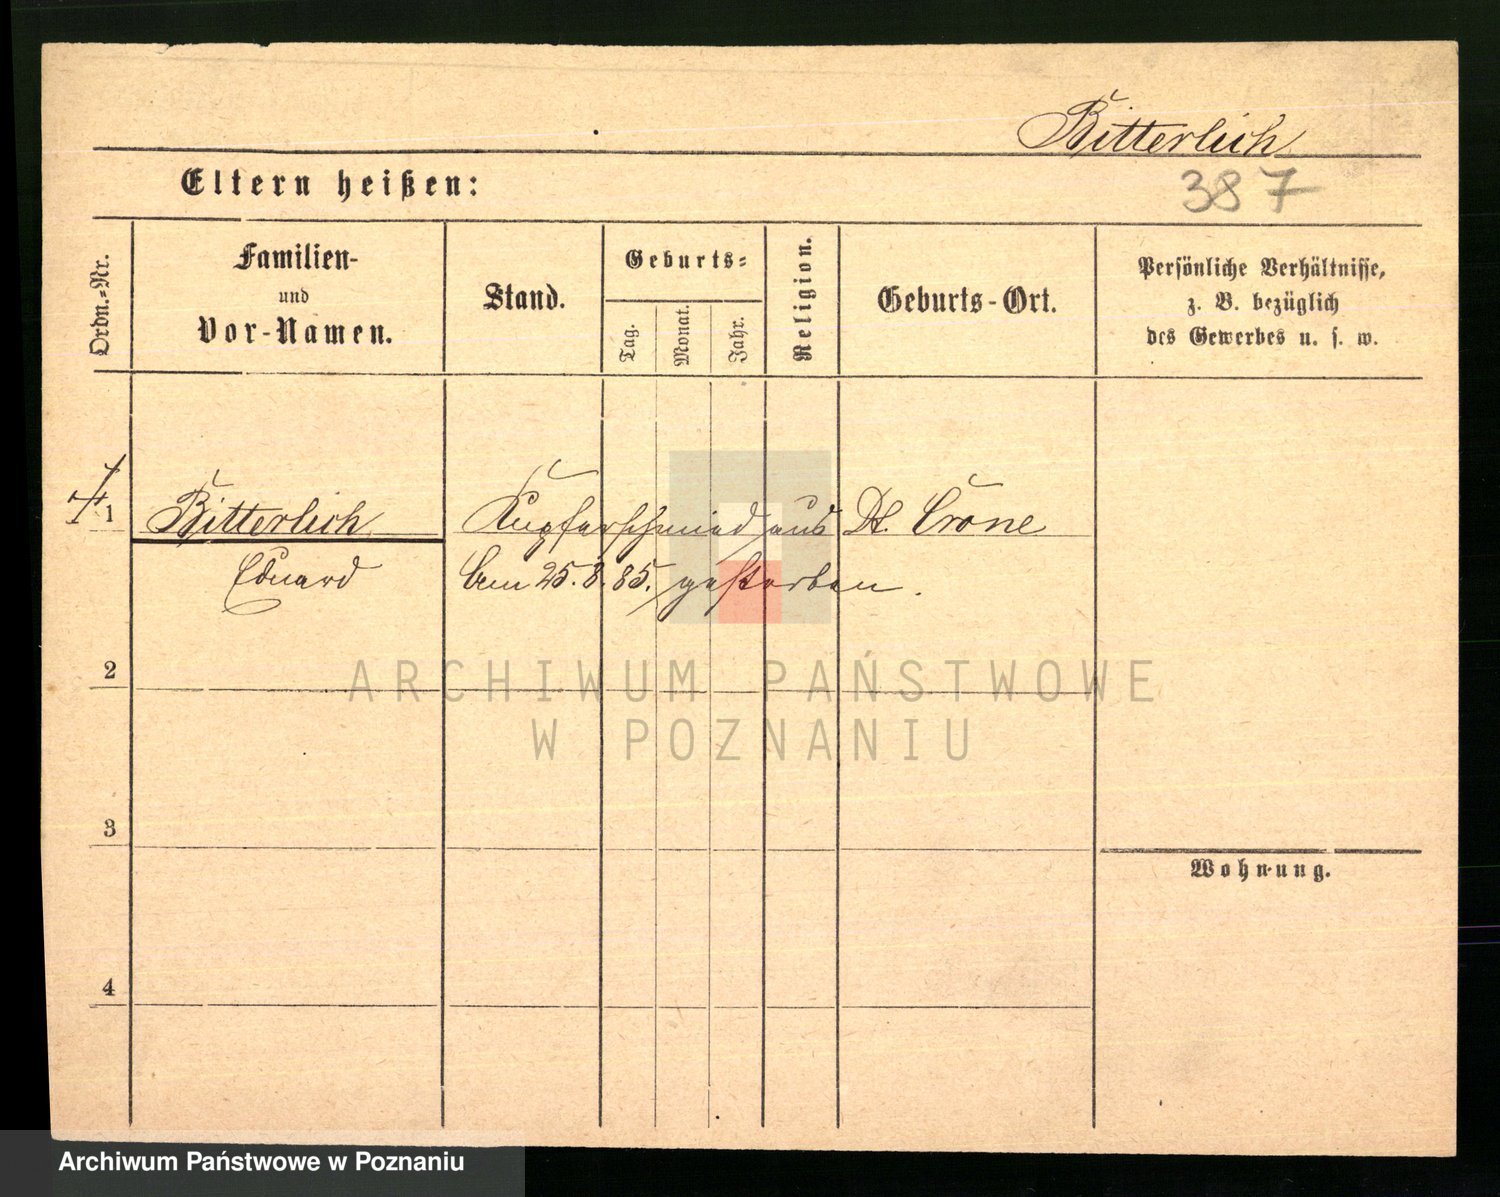 Bitterlich
Eltern heißen:
387
Ordn.-Nr.
Familien-
und
Vor-Namen.
Stand.
Geburts-
Tag.
Monat.
Jahr.
Religion.
Geburts-Ort.
Persönliche Verhältnisse,
z. B. bezüglich
des Gewerbes u. s. w.
1
Bitterlich Kupferschmied aus Dt. Crone
Eduard am 25.8.85. gestorben.
2
ARCHIWUM PAŃSTWOWE
W POZNANIU
3
Wohnung.
4
Archiwum Państwowe w Poznaniu